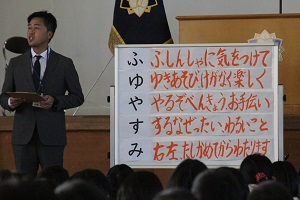 ふ ふしんしゃに気をつけて
ゆ ゆきあそびけがなく楽しく
や やるぞべんきょう、お手伝い
す するなぜったい、わるいこと
み 右左、たしかめてからわたります